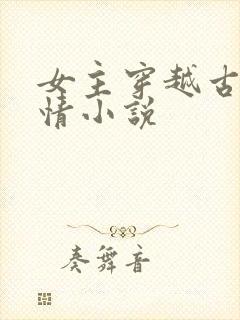 女主穿越古
情小说
奏舞音